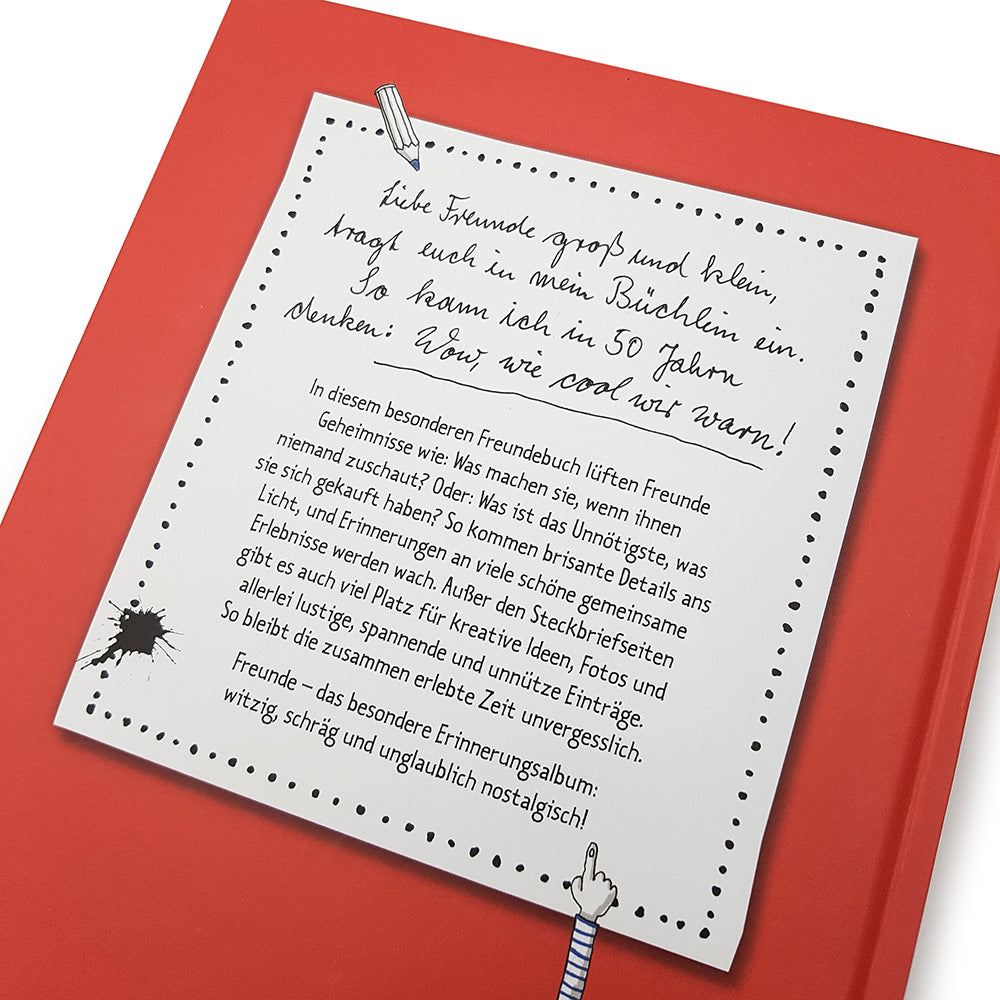 Liebe Freunde groß und klein,
tragt euch in mein Büchlein ein.
So kann ich in 50 Jahrn
denken: Wow, wie cool wir warn!
In diesem besonderen Freundebuch lüften Freunde
Geheimnisse wie: Was machen sie, wenn ihnen
niemand zuschaut? Oder: Was ist das Unnötigste, was
sie sich gekauft haben? So kommen brisante Details ans
Licht, und Erinnerungen an viele schöne gemeinsame
Erlebnisse werden wach. Außer den Steckbriefseiten
gibt es auch viel Platz für kreative Ideen, Fotos und
allerlei lustige, spannende und unnütze Einträge.
So bleibt die zusammen erlebte Zeit unvergesslich.
Freunde – das besondere Erinnerungsalbum:
witzig, schräg und unglaublich nostalgisch!